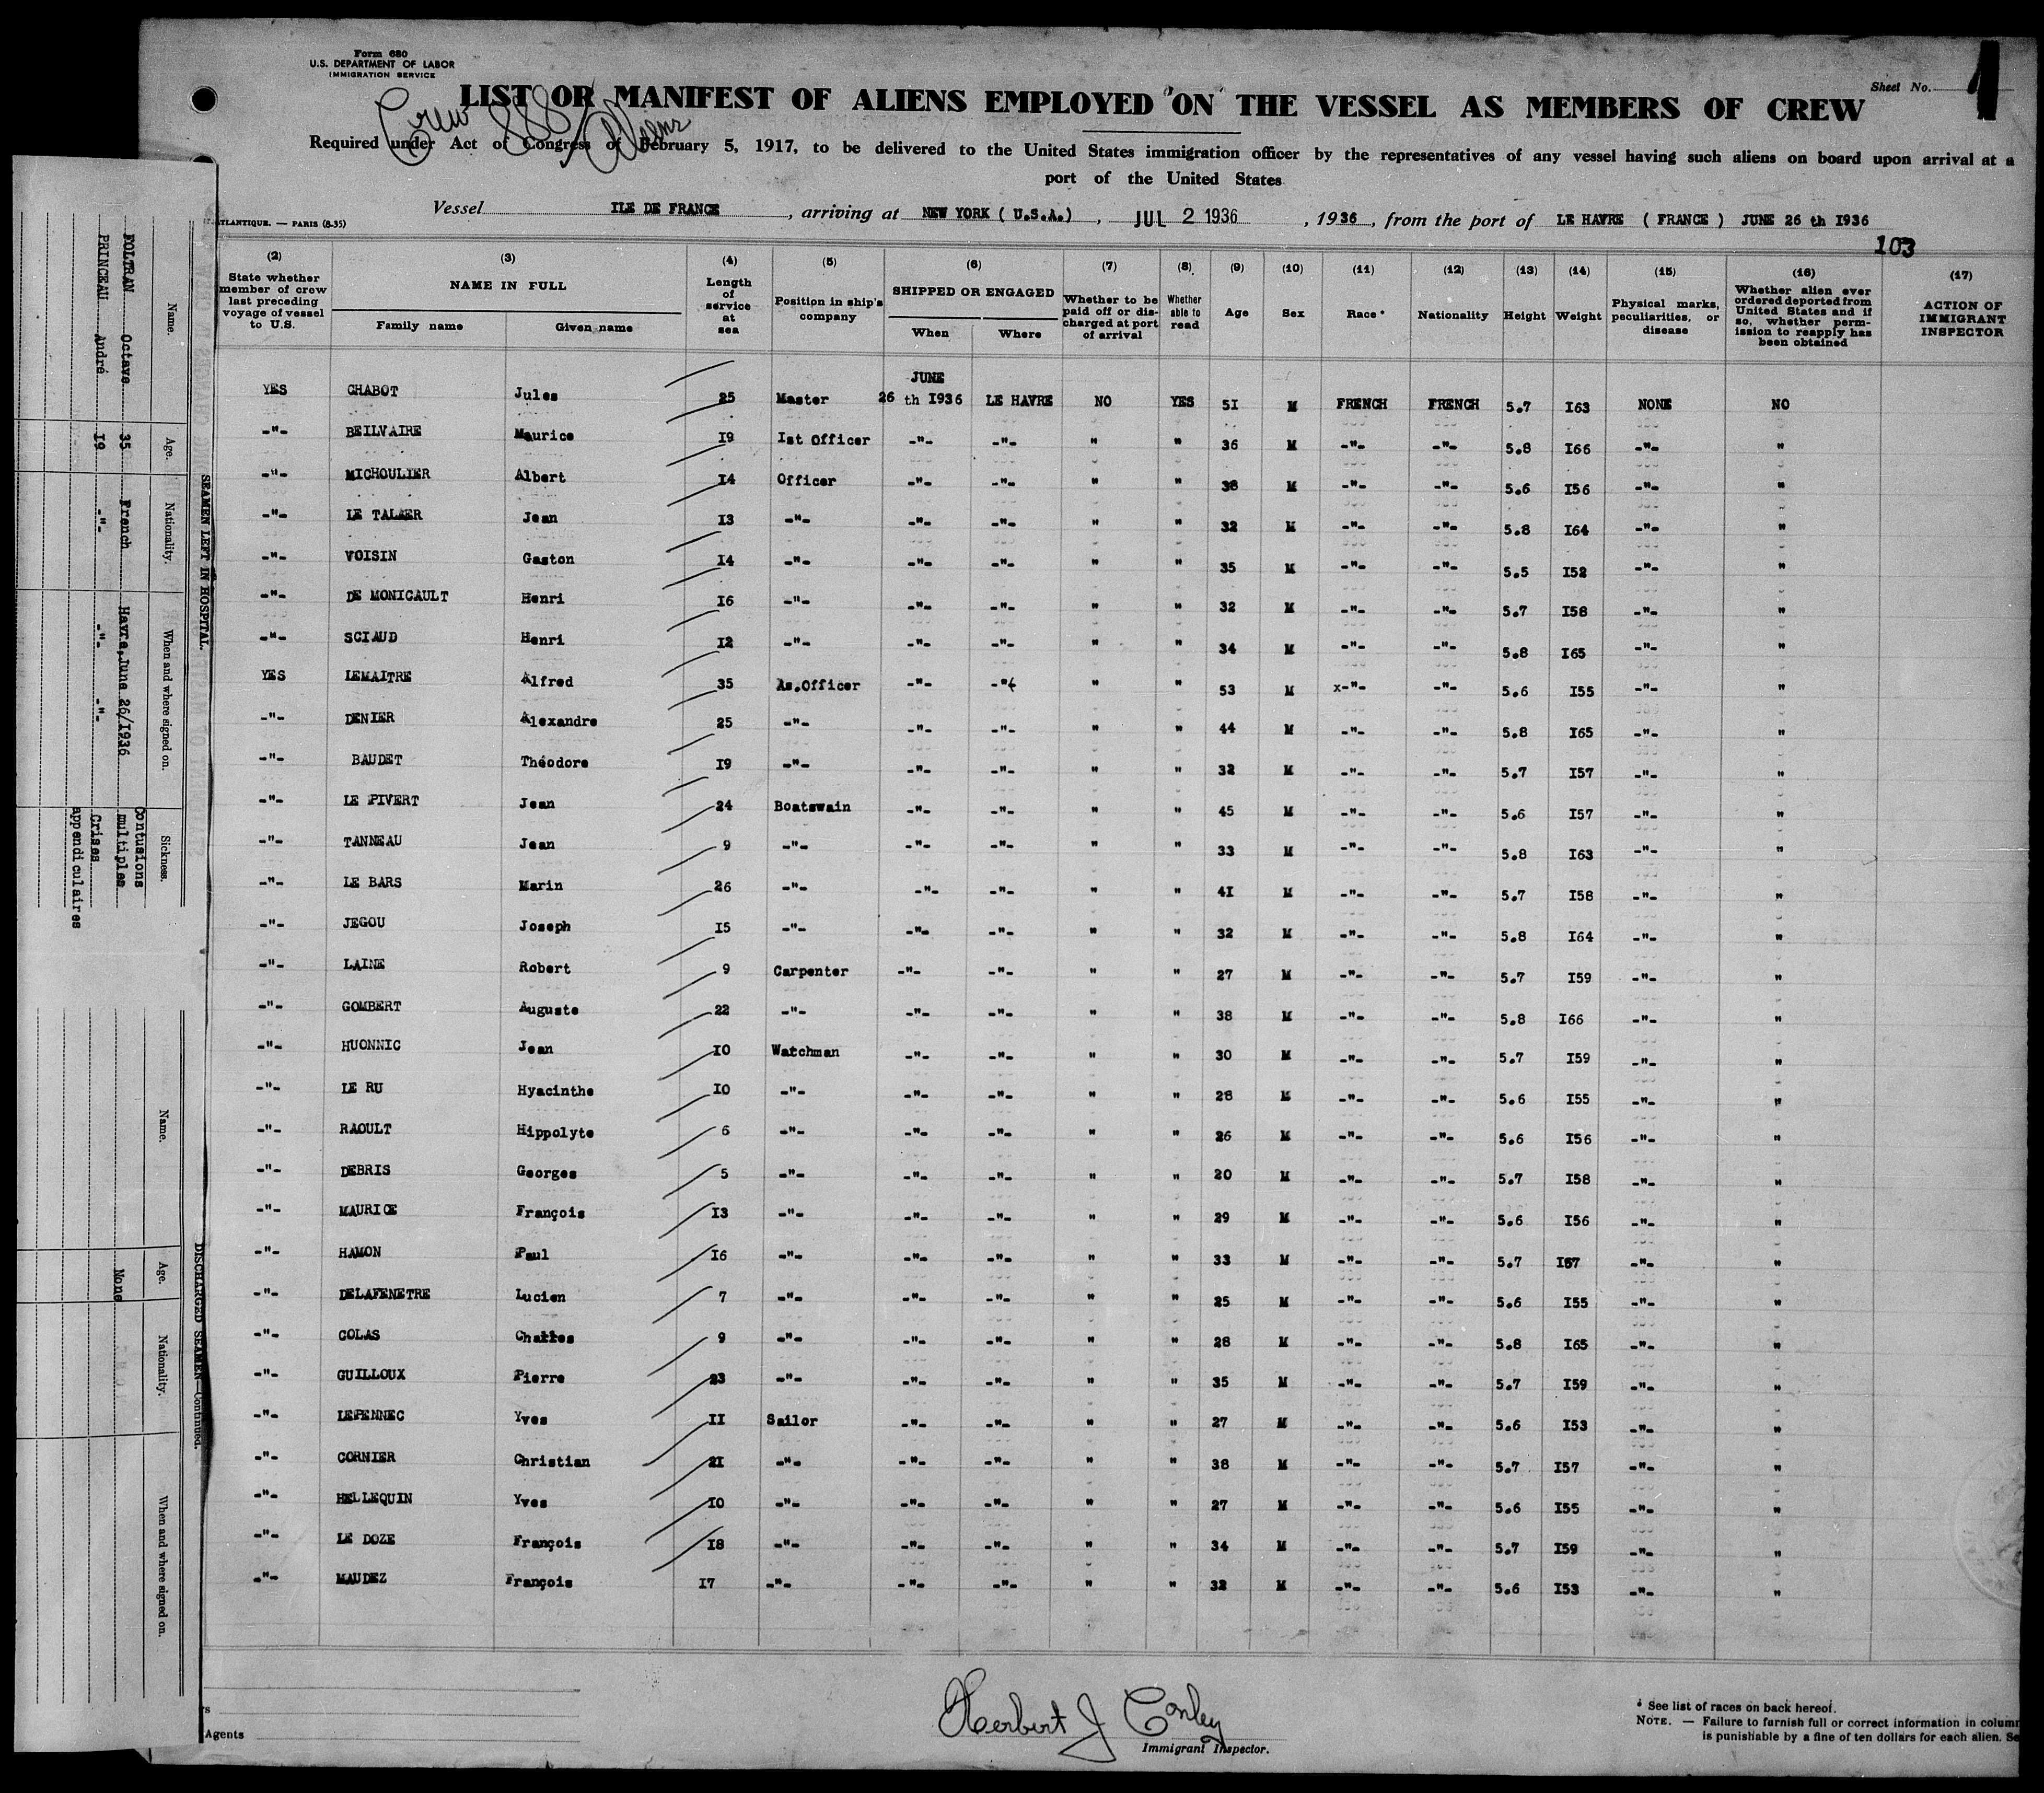 Form 680
U.S. DEPARTMENT OF LABOR
IMMIGRATION SERVICE
Sheet No. 1
LIST OR MANIFEST OF ALIENS EMPLOYED ON THE VESSEL AS MEMBERS OF CREW
Crew 886 Aliens
Required under Act of Congress of February 5, 1917, to be delivered to the United States immigration officer by the representatives of any vessel having such aliens on board upon arrival at a
port of the United States
Vessel ILE DE FRANCE, arriving at NEW YORK ( U.S.A.), JUL 2 1936, 1936, from the port of LE HAVRE ( FRANCE ) JUNE 26 th I936
ATLANTIQUE. — PARIS (8-35)
103
(2) State whether member of crew last preceding voyage of vessel to U.S.
(3) NAME IN FULL Family name Given name
(4) Length of service at sea
(5) Position in ship's company
(6) SHIPPED OR ENGAGED When Where
(7) Whether to be paid off or discharged at port of arrival
(8) Whether able to read
(9) Age
(10) Sex
(11) Race *
(12) Nationality
(13) Height
(14) Weight
(15) Physical marks, peculiarities, or disease
(16) Whether alien ever ordered deported from United States and if so, whether permission to reapply has been obtained
(17) ACTION OF IMMIGRANT INSPECTOR
YES CHABOT Jules 25 Master JUNE 26 th I936 LE HAVRE NO YES 5I M FRENCH FRENCH 5.7 I63 NONE NO
-"- BEILVAIRE Maurice I9 Ist Officer -"- -"- " " 36 M -"- -"- 5.8 I66 -"- "
-"- MICHOULIER Albert I4 Officer -"- -"- " " 38 M -"- -"- 5.6 I56 -"- "
-"- LE TALAER Jean I3 -"- -"- -"- " " 32 M -"- -"- 5.8 I64 -"- "
-"- VOISIN Gaston I4 -"- -"- -"- " " 35 M -"- -"- 5.5 I52 -"- "
-"- DE MONICAULT Henri I6 -"- -"- -"- " " 32 M -"- -"- 5.7 I58 -"- "
-"- SCIAUD Henri I2 -"- -"- -"- " " 34 M -"- -"- 5.8 I65 -"- "
YES LEMAITRE Alfred 35 As.Officer -"- -"- " " 53 M x-"- -"- 5.6 I55 -"- "
-"- DENIER Alexandre 25 -"- -"- -"- " " 44 M -"- -"- 5.8 I65 -"- "
-"- BAUDET Théodore I9 -"- -"- -"- " " 32 M -"- -"- 5.7 I57 -"- "
-"- LE PIVERT Jean 24 Boatswain -"- -"- " " 45 M -"- -"- 5.6 I57 -"- "
-"- TANNEAU Jean 9 -"- -"- -"- " " 33 M -"- -"- 5.8 I63 -"- "
-"- LE BARS Marin 26 -"- -"- -"- " " 4I M -"- -"- 5.7 I58 -"- "
-"- JEGOU Joseph I5 -"- -"- -"- " " 32 M -"- -"- 5.8 I64 -"- "
-"- LAINE Robert 9 Carpenter -"- -"- " " 27 M -"- -"- 5.7 I59 -"- "
-"- GOMBERT Auguste 22 -"- -"- -"- " " 38 M -"- -"- 5.8 I66 -"- "
-"- HUONNIC Jean I0 Watchman -"- -"- " " 30 M -"- -"- 5.7 I59 -"- "
-"- LE RU Hyacinthe I0 -"- -"- -"- " " 28 M -"- -"- 5.6 I55 -"- "
-"- RAOULT Hippolyte 6 -"- -"- -"- " " 26 M -"- -"- 5.6 I56 -"- "
-"- DEBRIS Georges 5 -"- -"- -"- " " 20 M -"- -"- 5.7 I58 -"- "
-"- MAURICE François I3 -"- -"- -"- " " 29 M -"- -"- 5.6 I56 -"- "
-"- HAMON Paul I6 -"- -"- -"- " " 33 M -"- -"- 5.7 I67 -"- "
-"- DELAFENETRE Lucien 7 -"- -"- -"- " " 25 M -"- -"- 5.6 I55 -"- "
-"- COLAS Charles 9 -"- -"- -"- " " 28 M -"- -"- 5.8 I65 -"- "
-"- GUILLOUX Pierre 23 -"- -"- -"- " " 35 M -"- -"- 5.7 I59 -"- "
-"- LEPENNEC Yves II Sailor -"- -"- " " 27 M -"- -"- 5.6 I53 -"- "
-"- CORNIER Christian 2I -"- -"- -"- " " 38 M -"- -"- 5.7 I57 -"- "
-"- HELLEQUIN Yves I0 -"- -"- -"- " " 27 M -"- -"- 5.6 I55 -"- "
-"- LE DOZE François I8 -"- -"- -"- " " 34 M -"- -"- 5.7 I59 -"- "
-"- MAUDEZ François I7 -"- -"- -"- " " 32 M -"- -"- 5.6 I53 -"- "
Herbert J Conley
Immigrant Inspector.
* See list of races on back hereof.
NOTE. — Failure to furnish full or correct information in column
is punishable by a fine of ten dollars for each alien. Se
rs
Agents
SEAMEN LEFT IN HOSPITAL.
Name. Age. Nationality. When and where signed on. Sickness.
FOLTRAN Octave 35 French Havre,June 26/I936 Contusions multiples
PRINCEAU André I9 -"- -"- -"- Crises appendiculaires
DISCHARGED SEAMEN—Continued.
Name. Age. Nationality. When and where signed on.
None